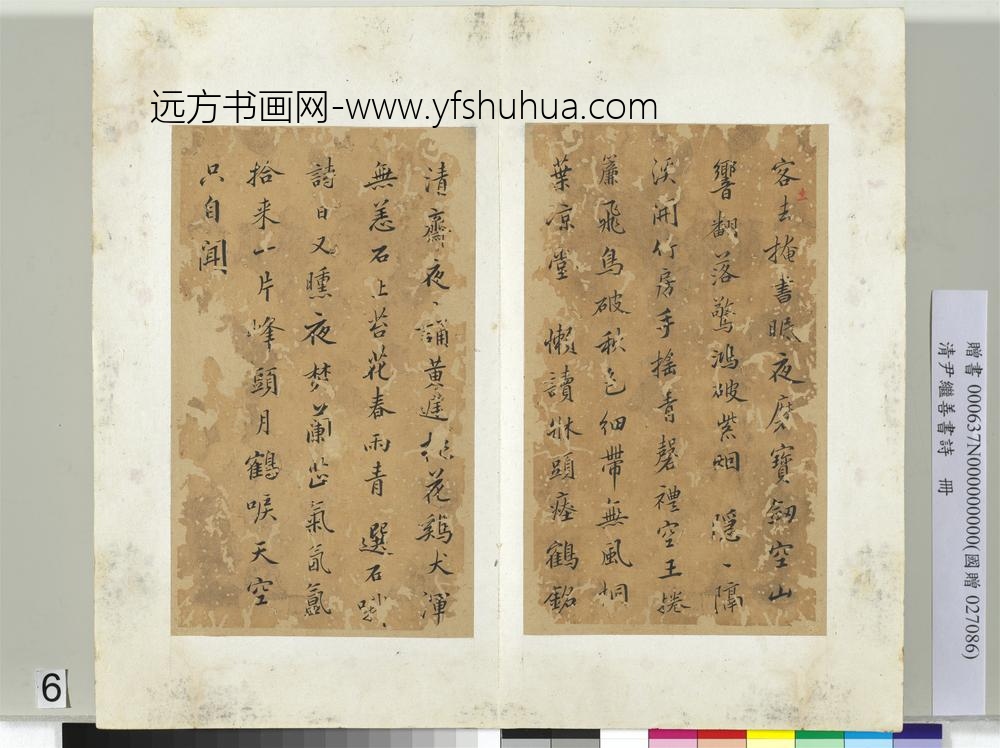 远方书画网-www.yfshuhua.com
客去掩書眠夜磨寶劍空山
響翻落驚鴻破紫烟 隱、隔
溪開竹房手搖青磬禮空王捲
簾飛鳥破秋色細帶無風桐
葉凉堂 懶讀牀頭瘞鶴銘
清齋夜、誦黄庭 花鷄犬渾
無恙石上苔花春雨青 選石
詩日又曛夜焚蘭 氣氤氳
拾来一片峰頭月鶴唳天空
只自聞
贈書 000637N000000000(國贈 027086)
清尹繼善書詩 冊
6